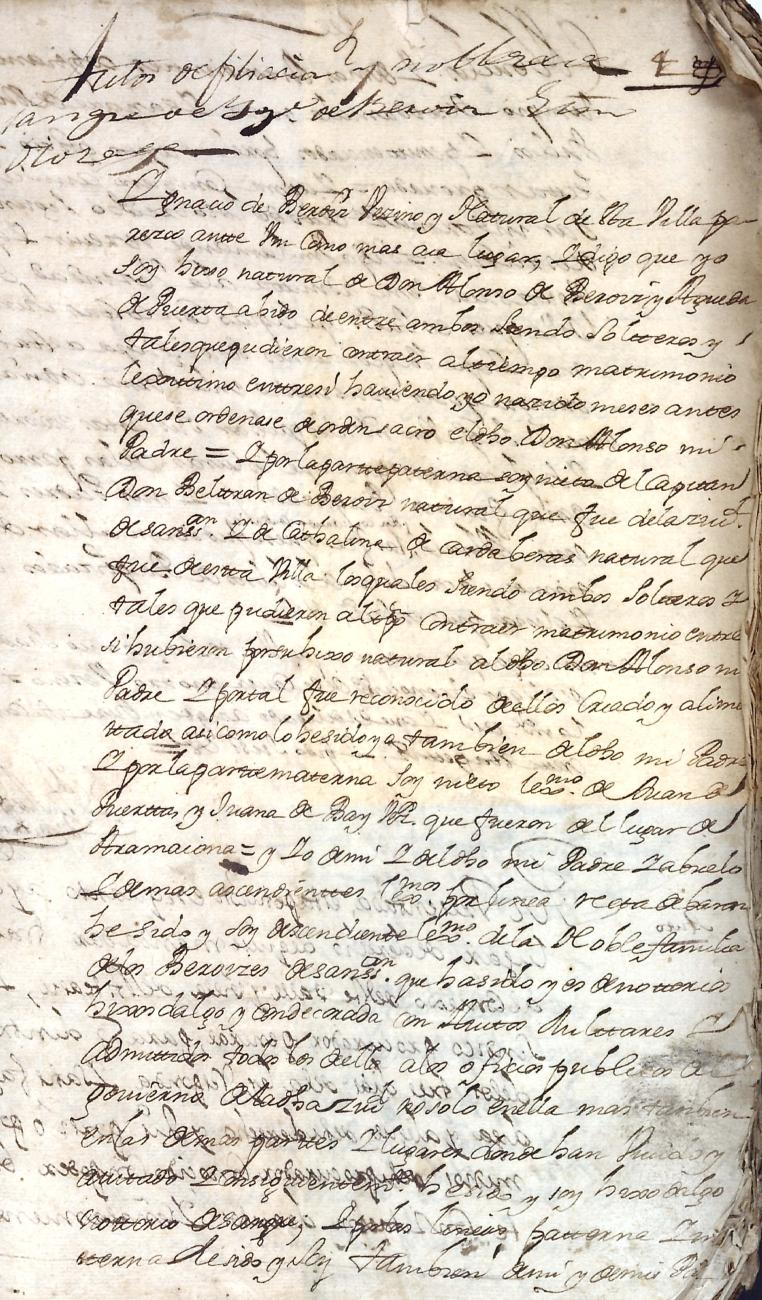 Autos de filiacion y nobleza de 4
sangre de Ygº de Berovir
Ygnacio de Berovi Vezino y Natural de esta Villa pa
rezco ante Vm como mas aia lugar, Y digo que yo
soy hixo natural de Don Alonso de Berovi y Agueda
de Puerta abido de entre ambos siendo solteros y
tales que pudieron contraer al tiempo matrimonio
lexittimo enttresi haviendo yo nazido meses antes
que se ordenase de orden sacro el dho Don Alonso mi
Padre = Y por la parte paterna soy nieto del Capitan
Don Beltran de Berovi natural que fue de la ziud
de sanssn Y de Cathalina de cardaberas natural que
fue de esta Villa los quales siendo ambos Solteros Y
tales que pudieron al tpo contraer matrimonio entre
si hubieron por su hixo natural al dho Don Alonso mi
Padre Y por tal fue reconocido de ellos Criado y alime
ntado asi como lo he sido yo tambien del dho mi Padre
Y por la parte materna soy nieto lexmo de Juan de
Puertta y Juana de Bay Vos que fueron del lugar de
Aramaiona = y Yo de mi Y del dho mi Padre Y abuelo
Y demas ascendienttes lexmos por linea recta de baron
he sido y soy decendiente lexmo de la Noble familia
de los Berovizes de sanssn que ha sido y es de notoria
hixosdalgo y condecorada con Auitos Militares Y
admitidos todos los de ella a los oficios publicos de
govierno de la dha ziud no solo en ella mas tambien
en las demas partes Y lugares donde han viuido y
avitado Y consiguientemte he sido y soy hixo dalgo
nottorio de sangre, Y por las lineas patterna Y ma
tterna he sido y soy tambien de mi y de mis Pa